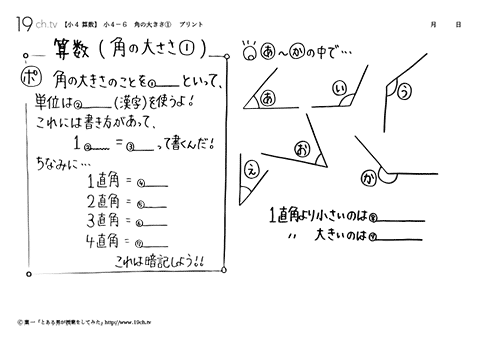 19ch.tv 【小4 算数】 小4-6 角の大きさ① プリント 月 日
算数(角の大きさ①)
ポ 角の大きさのことを①____といって、
単位は②____(漢字)を使うよ!
これには書き方があって、
1②____=③____って書くんだ!
ちなみに…
1直角=④____
2直角=⑤____
3直角=⑥____
4直角=⑦____
これは暗記しよう!!
あ~かの中で…
あ
い
う
え
お
か
1直角より小さいのは⑧____
〃 大きいのは⑨____
©葉一「とある男が授業をしてみた」http://www.19ch.tv